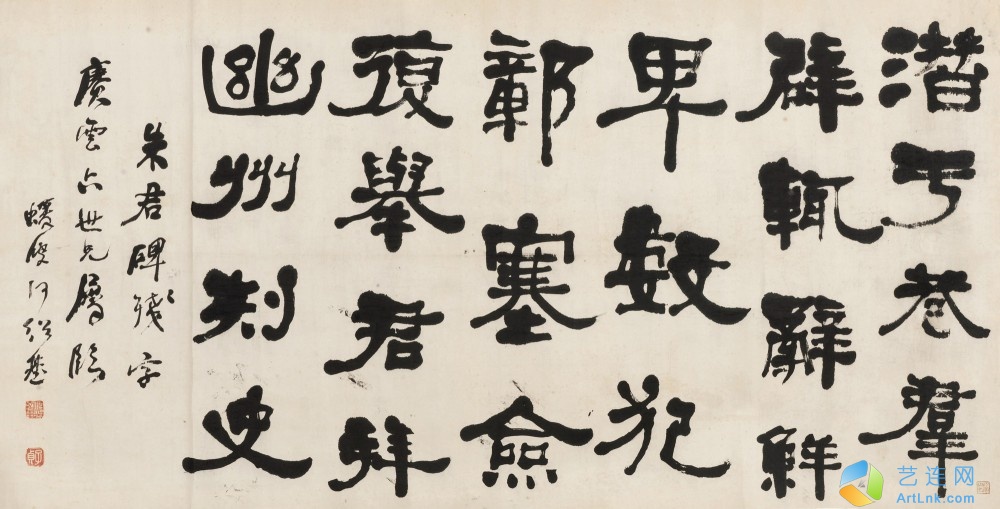 潛于巷羣
辟輒辭鮮
卑數犯
鄣塞僉
復舉君拜
幽州刺史
朱君碑殘字
賡雲世兄屬臨
蝯叟何紹基
艺连网
ArtLnk.com